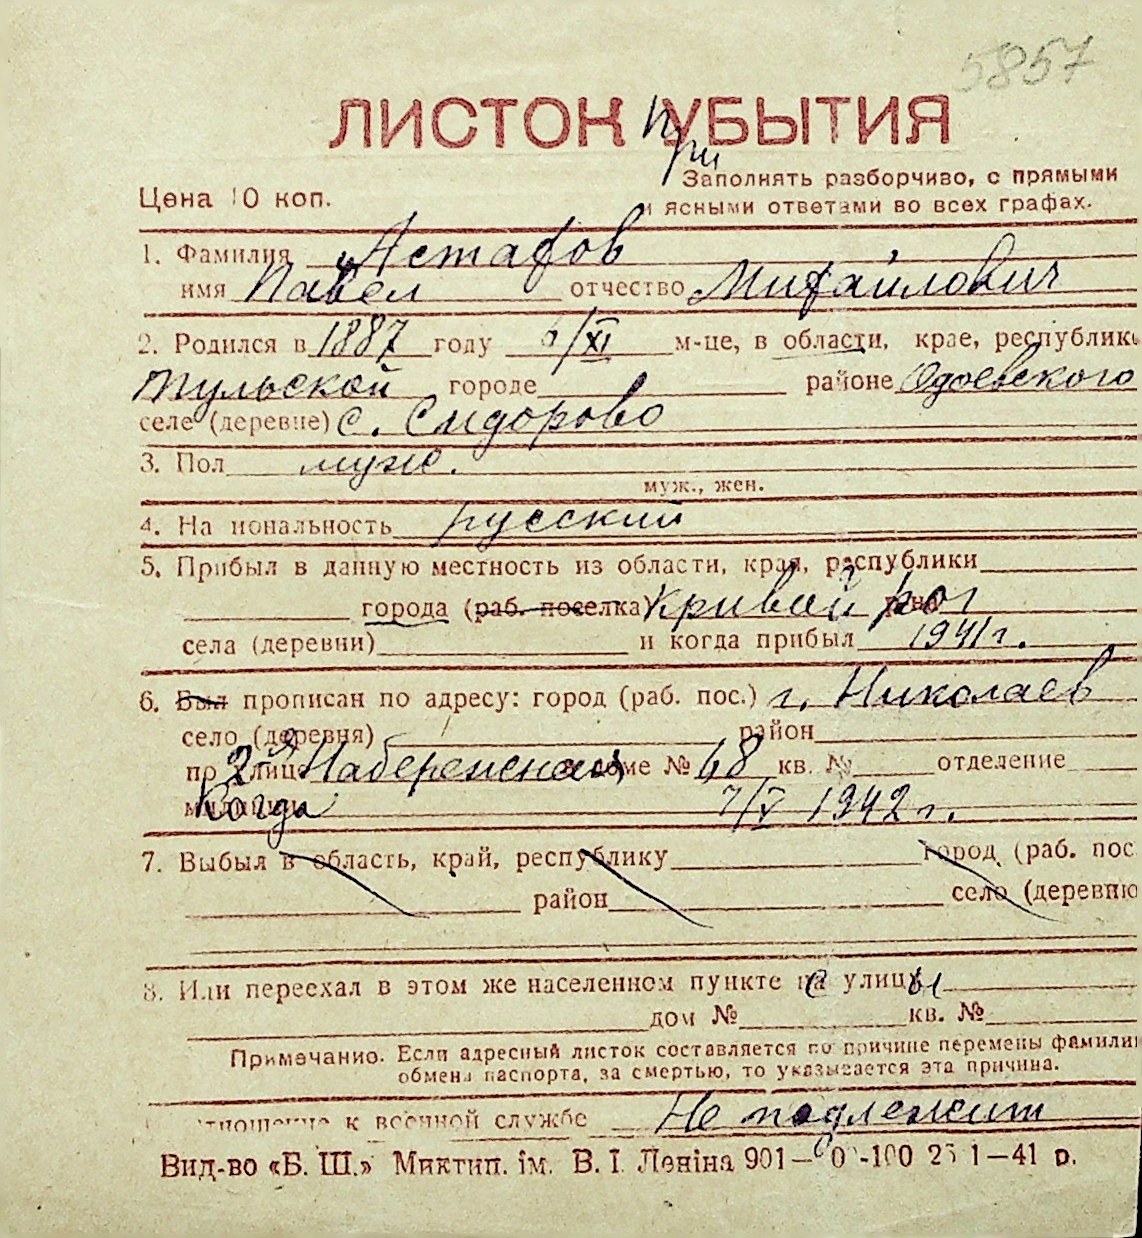 5857
ЛИСТОК УБЫТИЯ
при
Цена 10 коп.
Заполнять разборчиво, с прямыми
и ясными ответами во всех графах.
1. Фамилия Астафов
имя Павел отчество Михайлович
2. Родился в 1887 году 6/XI м-це, в области, крае, республике
Тульской городе районе Одоевского
селе (деревне) с. Сидорово
3. Пол муж.
муж., жен.
4. На иональность русский
5. Прибыл в данную местность из области, края, республики
города (раб. поселка) Кривой рог
села (деревни) и когда прибыл 1941 г.
6. Был прописан по адресу: город (раб. пос.) г. Николаев
село (деревня) район
по улице 2-я Набережная доме № 68 кв. № отделение
милиции Когда 7/V 1942 г.
7. Выбыл в область, край, республику город (раб. пос
район село (деревню
8. Или переехал в этом же населенном пункте с улицы
дом № кв. №
Примечание. Если адресный листок составляется по причине перемены фамилии
обмена паспорта, за смертью, то указывается эта причина.
Отношение к военной службе Не подлежит
Вид-во «Б. Ш.» Миктип. ім. В. І. Леніна 901 1—41 р.